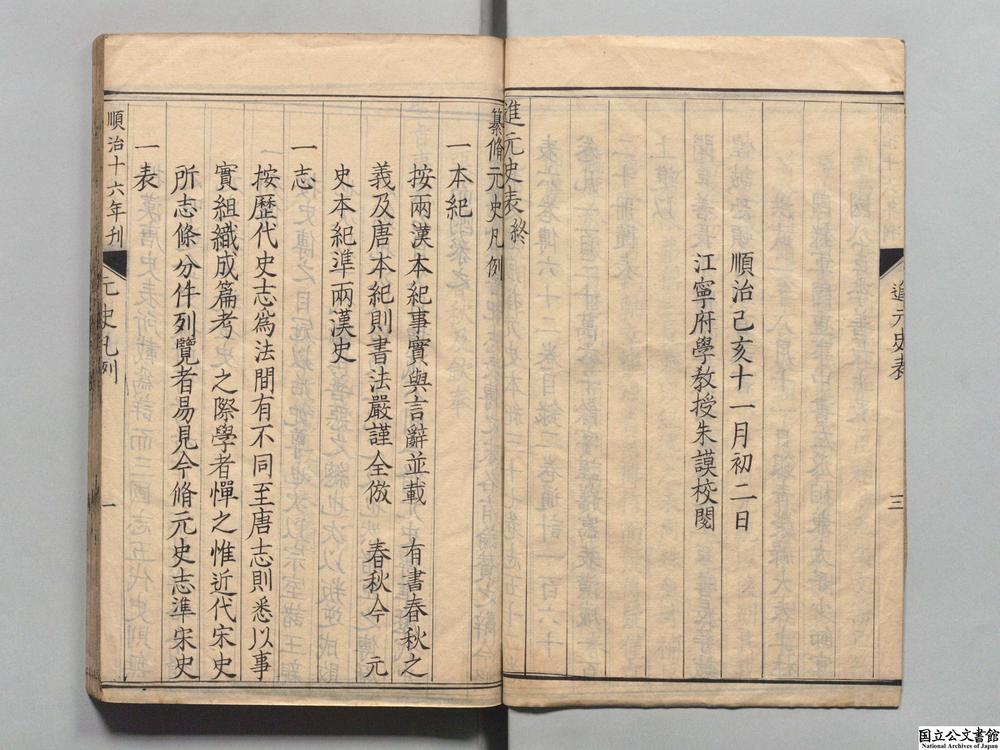 進元史表
三
順治己亥十一月初二日
江寧府學教授朱謨校閱
進元史表終
纂脩元史凡例
一本紀
按兩漢本紀事實與言辭並載 有書春秋之
義及唐本紀則書法嚴謹全倣 春秋今 元
史本紀準兩漢史
一志
按歷代史志爲法間有不同至唐志則悉以事
實組織成篇考 之際學者憚之惟近代宋史
所志條分件列覽者易見今脩元史志準宋史
一表
順治十六年刊
元史凡例
一
国立公文書館
National Archives of Japan